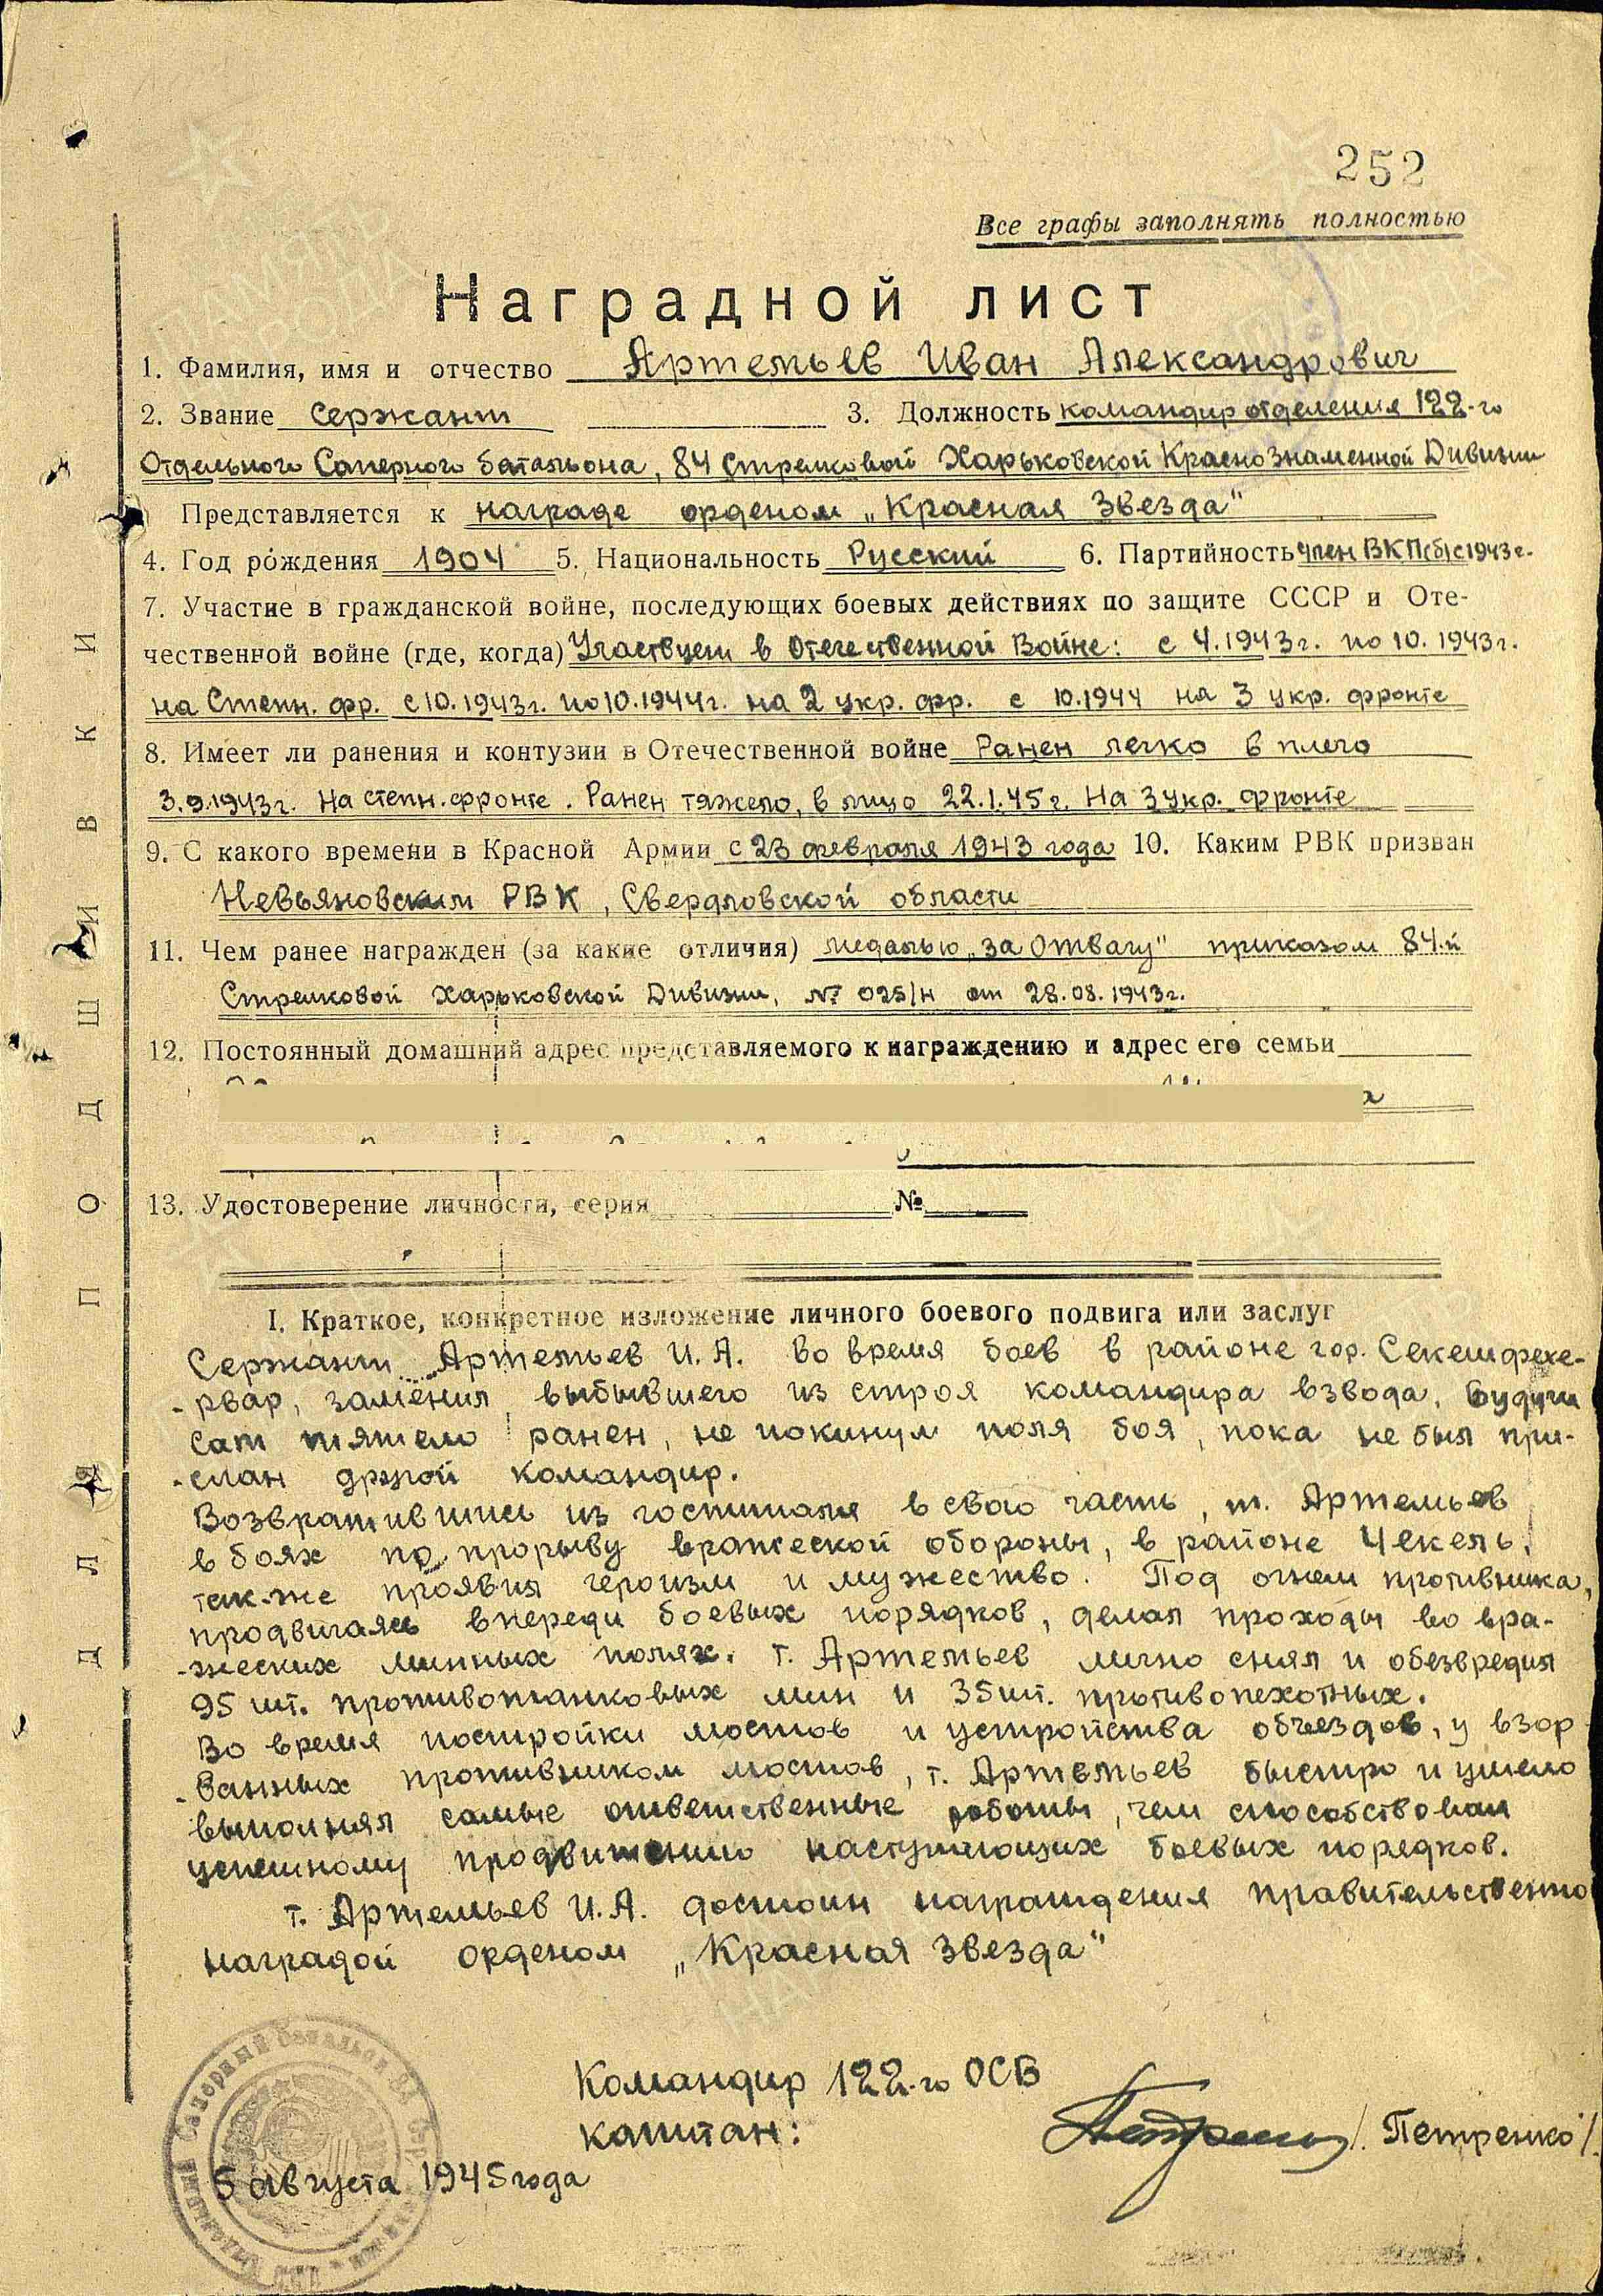 252
Все графы заполнять полностью
Наградной лист
1. Фамилия, имя и отчество Артемьев Иван Александрович
2. Звание Сержант 3. Должность командир отделения 122-го
Отдельного Саперного батальона, 84 Стрелковой Харьковской Краснознаменной Дивизии
Представляется к награде орденом „Красная Звезда"
4. Год рождения 1904 5. Национальность Русский 6. Партийность член ВКП(б) с 1943 г.
7. Участие в гражданской войне, последующих боевых действиях по защите СССР и Оте-
чественной войне (где, когда) Участвует в Отечественной Войне: с 4.1943г. по 10.1943г.
на Степн. фр. с 10.1943г. по 10.1944г. на 2 укр. фр. с 10.1944 на 3 укр. фронте
8. Имеет ли ранения и контузии в Отечественной войне Ранен легко в плечо
3.9.1943г. На степн. фронте. Ранен тяжело, в лицо 22.1.45г. На 3 укр. фронте
9. С какого времени в Красной Армии с 23 февраля 1943 года 10. Каким РВК призван
Невьяновским РВК, Свердловской области
11. Чем ранее награжден (за какие отличия) медалью „За Отвагу" приказом 84-й
Стрелковой Харьковской Дивизии, № 025/н от 28.08.1943г.
12. Постоянный домашний адрес представляемого к награждению и адрес его семьи
13. Удостоверение личности, серия №
I. Краткое, конкретное изложение личного боевого подвига или заслуг
Сержант Артемьев И.А. во время боев в районе гор. Секешфехе-
-рвар, заменил выбывшего из строя командира взвода, будучи
сам тяжело ранен, не покинул поля боя, пока не был при-
-слан другой командир.
Возвратившись из госпиталя в свою часть, т. Артемьев
в боях по прорыву вражеской обороны, в районе Чекель,
так-же проявил героизм и мужество. Под огнем противника,
продвигаясь впереди боевых порядков, делал проходы во вра-
-жеских минных полях. т. Артемьев лично снял и обезвредил
95 шт. противотанковых мин и 35 шт. противопехотных.
Во время постройки мостов и устройства объездов, у взор
-ванных противником мостов, т. Артемьев быстро и умело
выполнял самые ответственные работы, чем способствовал
успешному продвижению наступающих боевых порядков.
т. Артемьев И.А. достоин награждения правительственно
наградой орденом „Красная Звезда"
Командир 122-го ОСБ
капитан: /Петренко/.
5 августа 1945 года
ДЛЯ ПОДШИВКИ